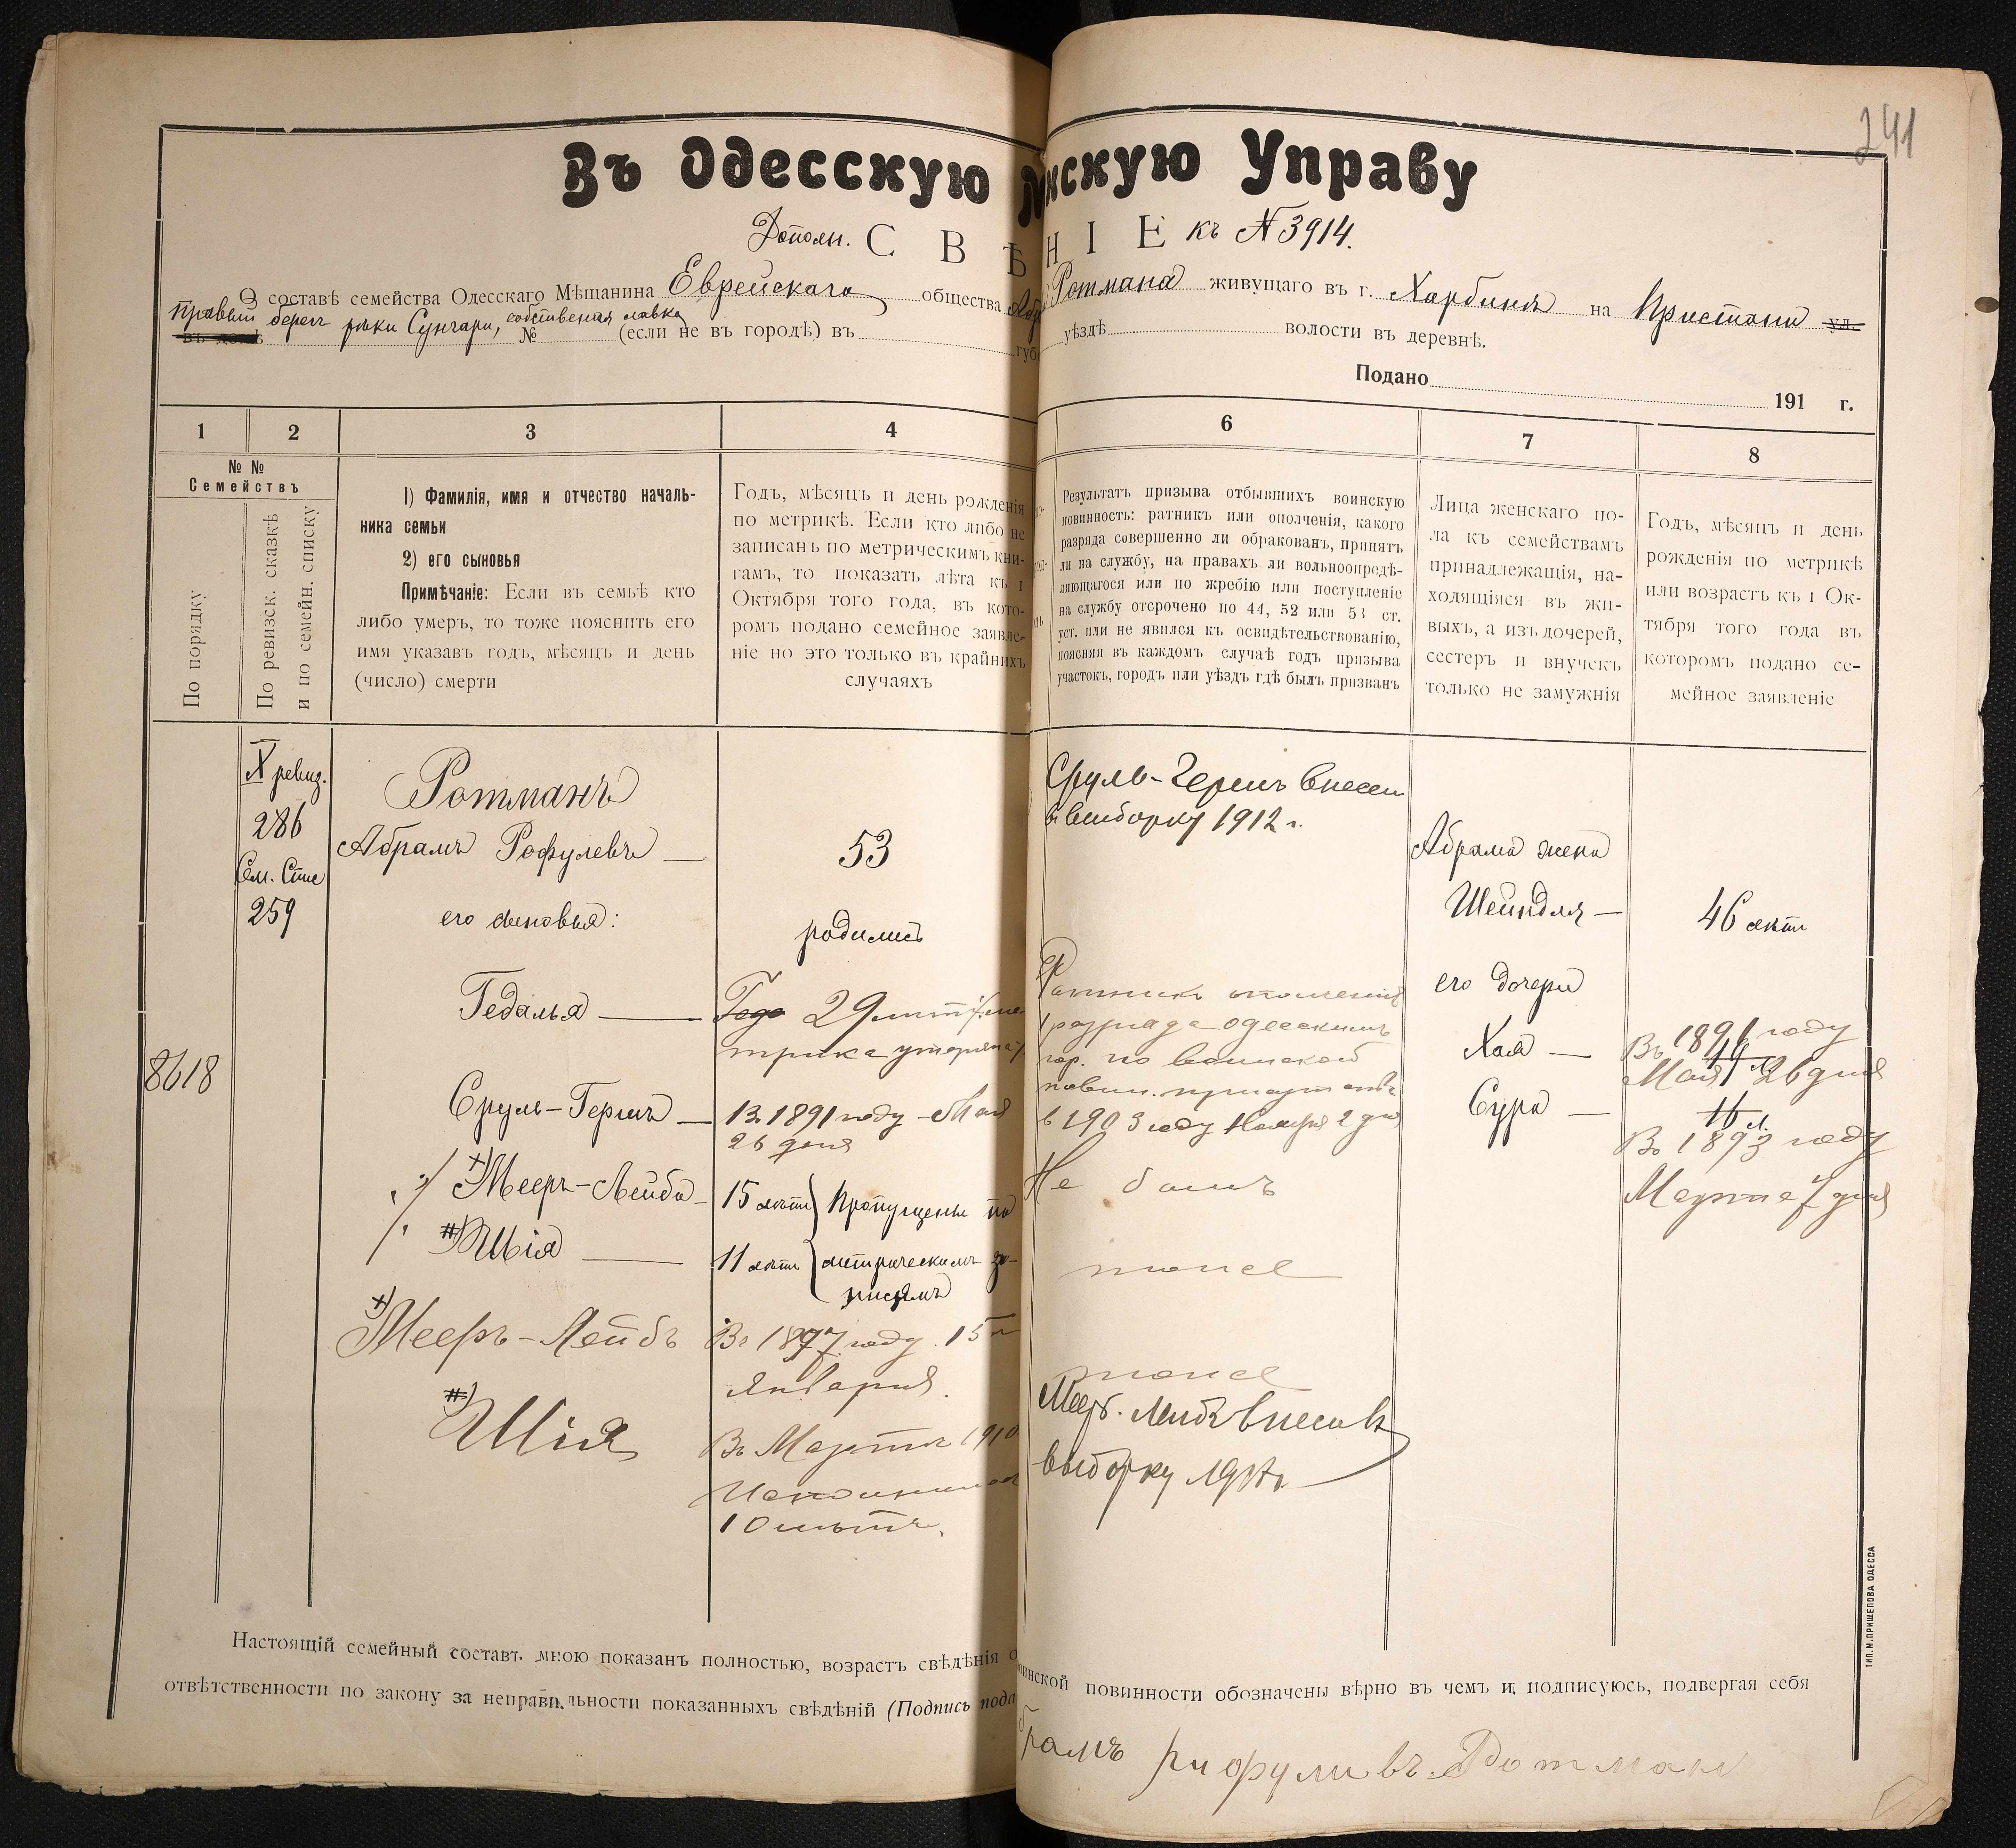 241
Въ Одесскую нскую Управу
Дополн. С В Ѣ НІЕ къ № 3914.
О составѣ семейства Одесскаго Мѣщанина Еврейскаго общества Ротмана живущаго въ г. Харбинѣ на Пристани ул.
правый берегъ рѣки Сунгари, собственная лавка
въ домѣ № (если не въ городѣ) въ губ уѣздѣ волости въ деревнѣ.
Подано 191 г.
1 2 3 4 6 7 8
№ № Семействъ
По порядку
По ревизск. сказкѣ
и по семейн. списку
1) Фамилія, имя и отчество началь-
ника семьи
2) его сыновья
Примѣчаніе: Если въ семьѣ кто
либо умеръ, то тоже пояснить его
имя указавъ годъ, мѣсяцъ и день
(число) смерти
Годъ, мѣсяцъ и день рожденія
по метрикѣ. Если кто либо не
записанъ по метрическимъ кни-
гамъ, то показать лѣта къ 1
Октября того года, въ кото-
ромъ подано семейное заявле-
ніе но это только въ крайнихъ
случаяхъ
Результатъ призыва отбывшихъ воинскую
повинность: ратникъ или ополченія, какого
разряда совершенно ли обракованъ, принятъ
ли на службу, на правахъ ли вольноопредѣ-
ляющагося или по жребію или поступленіе
на службу отсрочено по 44, 52 или 53 ст.
уст. или не явился къ освидѣтельствованію,
поясняя въ каждомъ случаѣ годъ призыва
участокъ, городъ или уѣздъ гдѣ былъ призванъ
Лица женскаго по-
ла къ семействамъ
принадлежащія, на-
ходящіяся въ жи-
выхъ, а изъ дочерей,
сестеръ и внучекъ
только не замужнія
Годъ, мѣсяцъ и день
рожденія по метрикѣ
или возрастъ къ 1 Ок-
тября того года въ
которомъ подано се-
мейное заявленіе
X ревиз.
286
Сем. Спис
259
8618
Ротманъ
Абрамъ Рофулевъ —
его сыновья:
Гедалья —
Сруль-Гершъ —
+) Мееръ-Лейба —
#) Шія —
+) Мееръ-Лейбъ
#) Шія
53
родились
Года 29 лѣтъ (ме
трика утеряна)
Въ 1891 году Мая
26 дня
15 лѣтъ } Пропущены по
11 лѣтъ } метрическимъ за-
писямъ
Въ 1897 году 15го
Января.
Въ Мартѣ 1910
Исполнилось
10 лѣтъ.
Сруль-Гершъ внесен
в выборку 1912 г.
Ратникъ ополченія
1 разряда одесскимъ
гор. по воинской
повин. присутств
в 1903 году Ноября 2 дня
Не былъ
тоже
тоже
Меер. Лейбъ внесен в
выборку
Абрама жена
Шейндля —
его дочери
Хая —
Сура —
46 лѣтъ
Въ 1891 году
Мая 26 дня
16 л.
Въ 1893 году
Марта 7 дня
Настоящій семейный составъ мною показанъ полностью, возрастъ свѣдѣнія о оинской повинности обозначены вѣрно въ чемъ и подписуюсь, подвергая себя
отвѣтственности по закону за неправильности показанныхъ свѣдѣній (Подпись пода
брамъ рифуливъ Ротман
ТИП. М. ПРИЩЕПОВА ОДЕССА